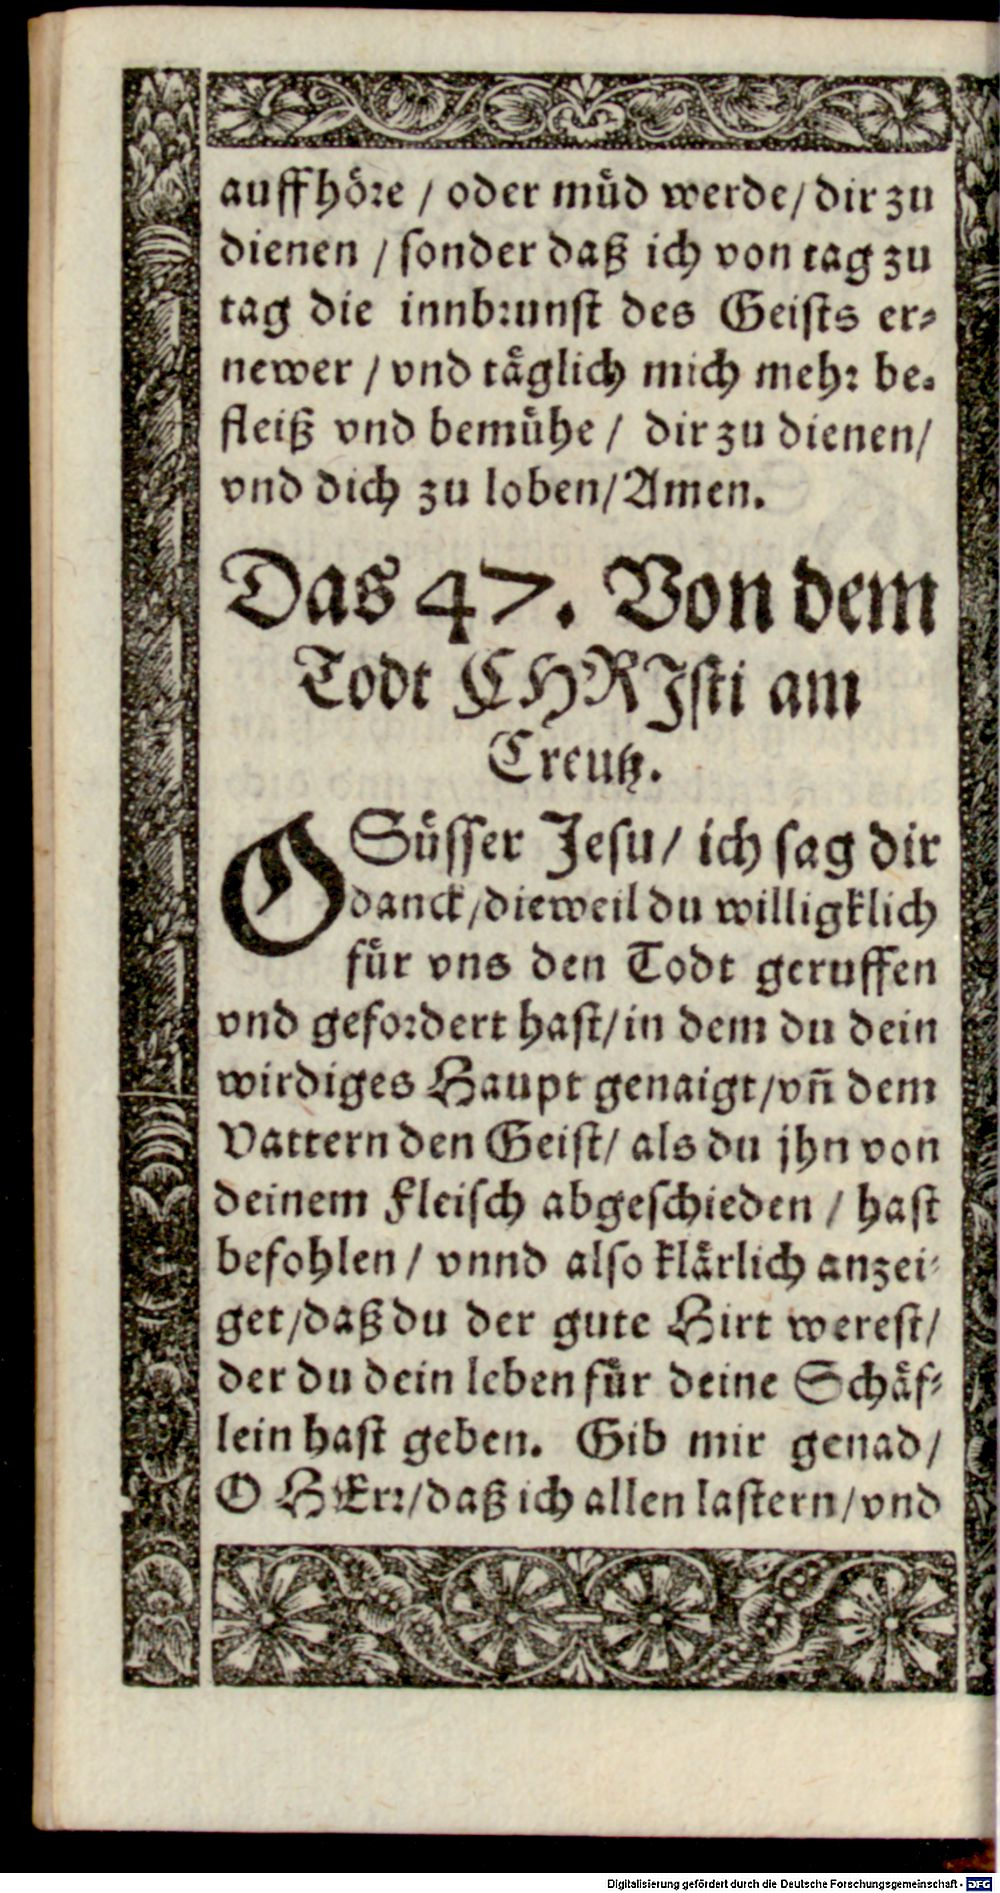 auffhöre / oder müd werde/ dir zu
dienen / sonder daß ich von tag zu
tag die innbrunst des Geists er-
newer / vnd täglich mich mehr be-
fleiß vnd bemühe / dir zu dienen/
vnd dich zu loben/ Amen.
Das 47. Von dem
Todt CHRJsti am
Creutz.
O Süsser Jesu/ ich sag dir
danck/dieweil du willigklich
für vns den Todt geruffen
vnd gefordert hast/in dem du dein
wirdiges Haupt genaigt/vñ dem
Vattern den Geist/ als du jhn von
deinem Fleisch abgeschieden / hast
befohlen / vnnd also klärlich anzei-
get/daß du der gute Hirt werest/
der du dein leben für deine Schäf-
lein hast geben. Gib mir genad/
O HErr/daß ich allen lastern/vnd
Digitalisierung gefördert durch die Deutsche Forschungsgemeinschaft - DFG